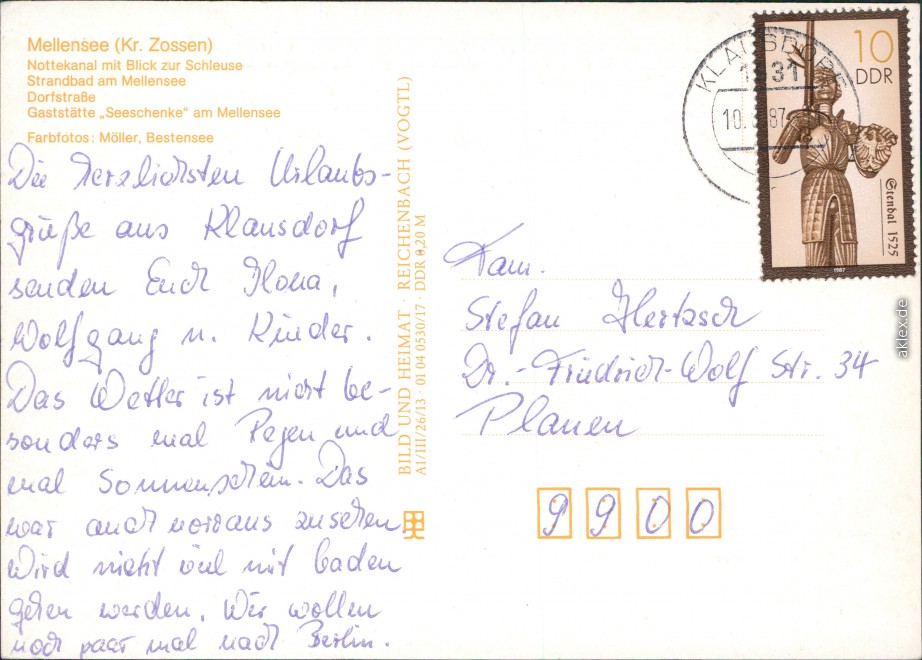 Mellensee (Kr. Zossen)
Nottekanal mit Blick zur Schleuse
Strandbad am Mellensee
Dorfstraße
Gaststätte „Seeschenke" am Mellensee
Farbfotos: Möller, Bestensee
Die herzlichsten Urlaubs-
grüße aus Klausdorf
senden Euch Ilona,
Wolfgang u. Kinder.
Das Wetter ist nicht be-
sonders mal Regen und
mal Sonnenschein. Das
war auch voraus zusehen.
Wird nicht viel mit baden
gehen werden. Wir wollen
noch paar mal nach Berlin.
BILD UND HEIMAT · REICHENBACH (VOGTL)
A1/III/26/13 · 01 04 0530/17 · DDR 0,20 M
KLAUSDORF
1631
10. 87
10
DDR
Stendal 1525
1987
Fam.
Stefan Hertzsch
Dr.-Friedrich-Wolf Str. 34
Plauen
9900
aklex.de